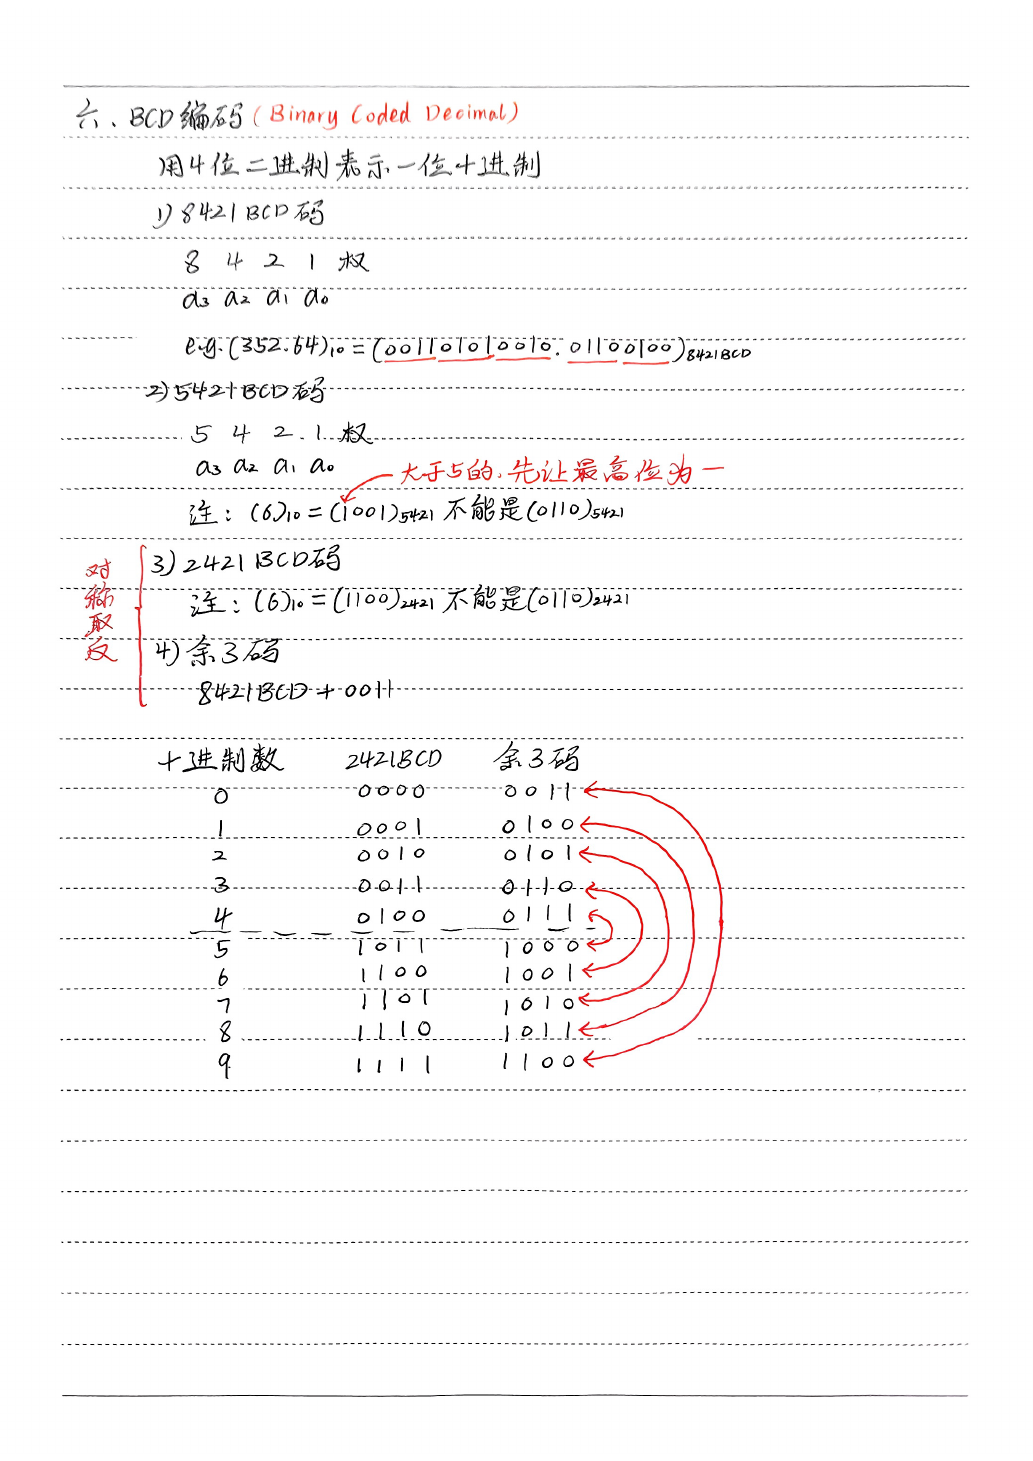 六、BCD编码(Binary Coded Decimal)
用4位二进制表示一位十进制
1) 8421BCD码
8 4 2 1 权
a3 a2 a1 a0
e.g.(352.64)10=(001101010010.01100100)8421BCD
2) 5421BCD码
5 4 2 1 权
a3 a2 a1 a0
大于5的,先让最高位为一
注:(6)10=(1001)5421 不能是(0110)5421
对称取反
3) 2421BCD码
注:(6)10=(1100)2421 不能是(0110)2421
4) 余3码
8421BCD+0011
十进制数 2421BCD 余3码
0 0000 0011
1 0001 0100
2 0010 0101
3 0011 0110
4 0100 0111
5 1011 1000
6 1100 1001
7 1101 1010
8 1110 1011
9 1111 1100